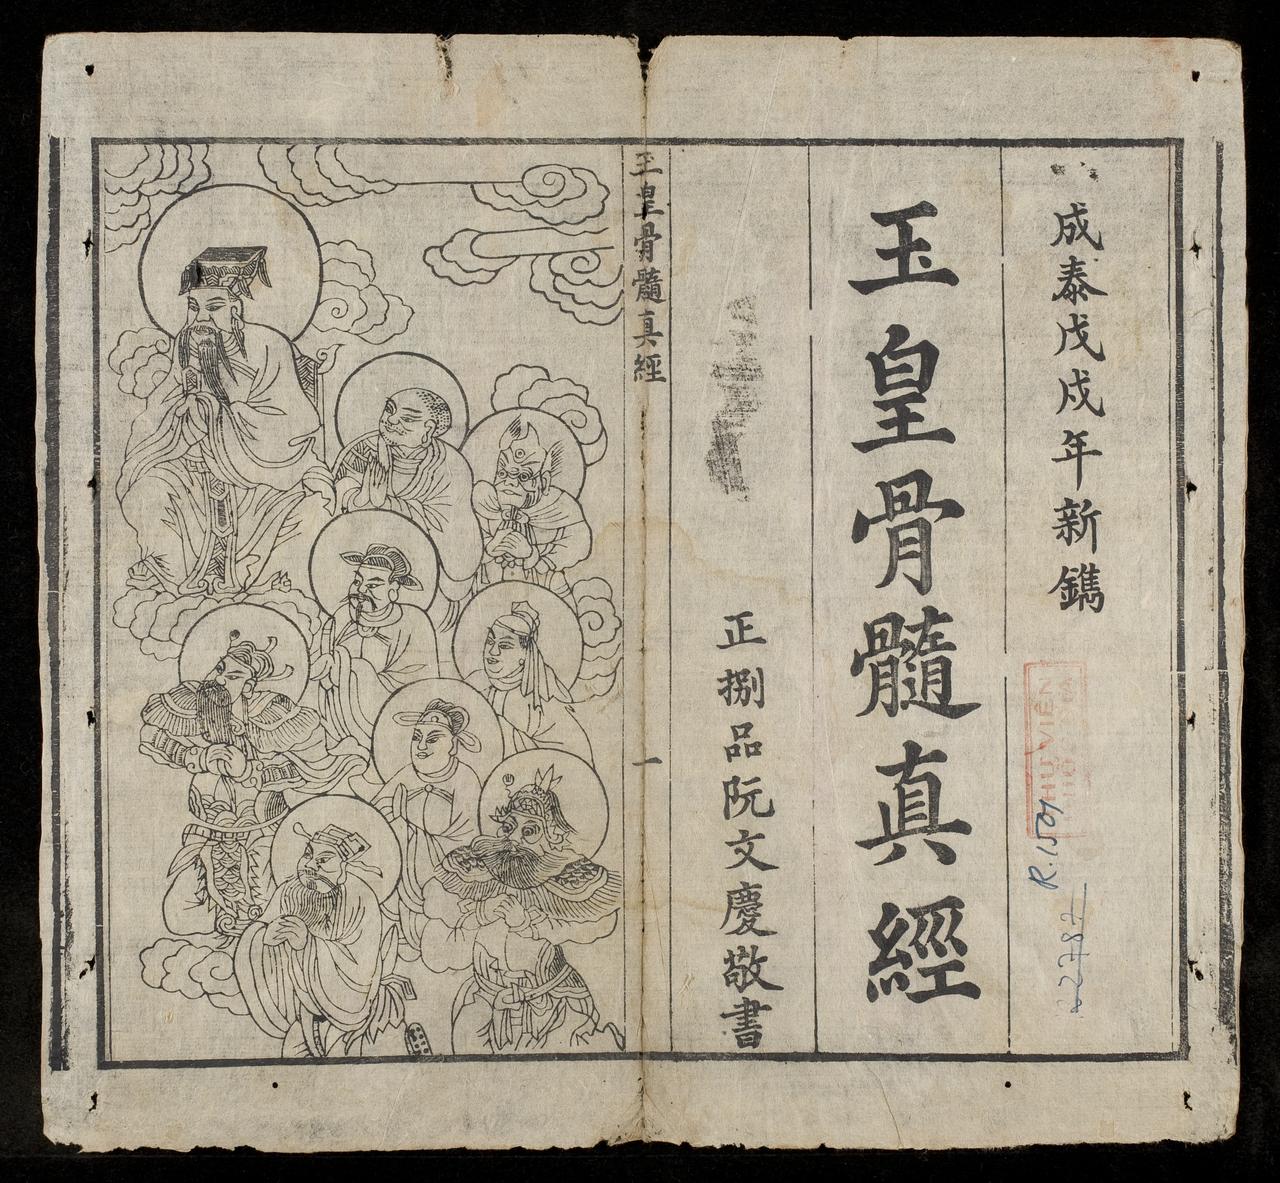 成泰戊戌年新鐫
玉皇骨髓真經
正捌品阮文慶敬書
玉皇骨髓真經
一
R.1501
22787